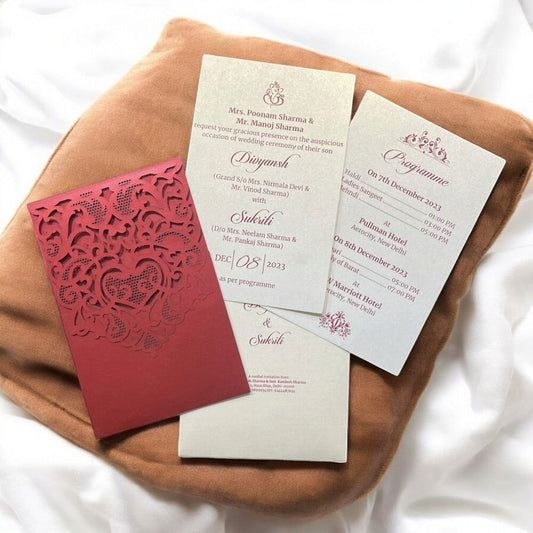 Mrs. Poonam Sharma &
Mr. Manoj Sharma
request your gracious presence on the auspicious
occasion of wedding ceremony of their son
Divyansh
(Grand S/o Mrs. Nirmala Devi &
Mr. Vinod Sharma)
with
Sukriti
(D/o Mrs. Neelam Sharma &
Mr. Pankaj Sharma)
DEC 08 2023
as per programme
Programme
On 7th December 2023
Haldi 01:00 PM
Ladies Sangeet 03:00 PM
Mehndi 05:00 PM
Pullman Hotel
Aerocity, New Delhi
On 8th December 2023
05:00 PM
of Barat 07:00 PM
JW Marriott Hotel
Aerocity, New Delhi
&
Sukriti
A cordial invitation from:
Sharma & Smt. Kamlesh Sharma
Hauz Khas, Delhi-110016